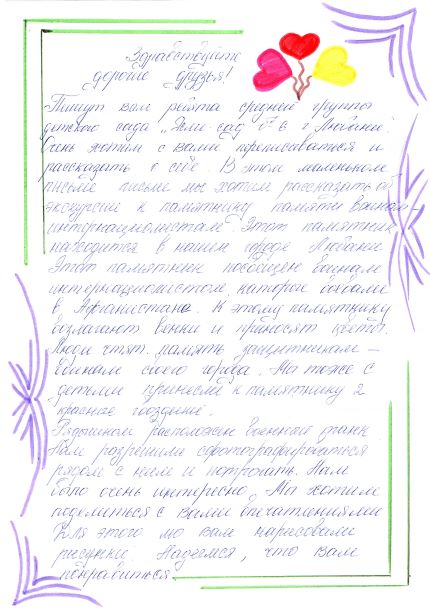 Здравствуйте
дорогие друзья!
Пишут вам ребята средней группы
детского сада „Ясли-сад № 6 г Любани".
Очень хотим с вами переписываться и
рассказать о себе. В этом маленьком
письме письме мы хотим рассказать об
экскурсии к памятнику памяти воинам-
интернационалистам. Этот памятник
находится в нашем городе Любани.
Этот памятник посвящен воинам
интернационалистам, которые воевали
в Афганистане. К этому памятнику
возлагают венки и приносят цветы.
Люди чтят память защитникам -
воинам своего города. Мы тоже с
детьми принесли к памятнику 2
красные гвоздики.
Рядышком расположен военный танк
Нам разрешили сфотографироваться
рядом с ним и потрогать. Нам
было очень интересно. Мы хотим
поделиться с вами впечатлениями
Для этого мы вам нарисовали
рисунки Надеемся, что вам
понравиться.